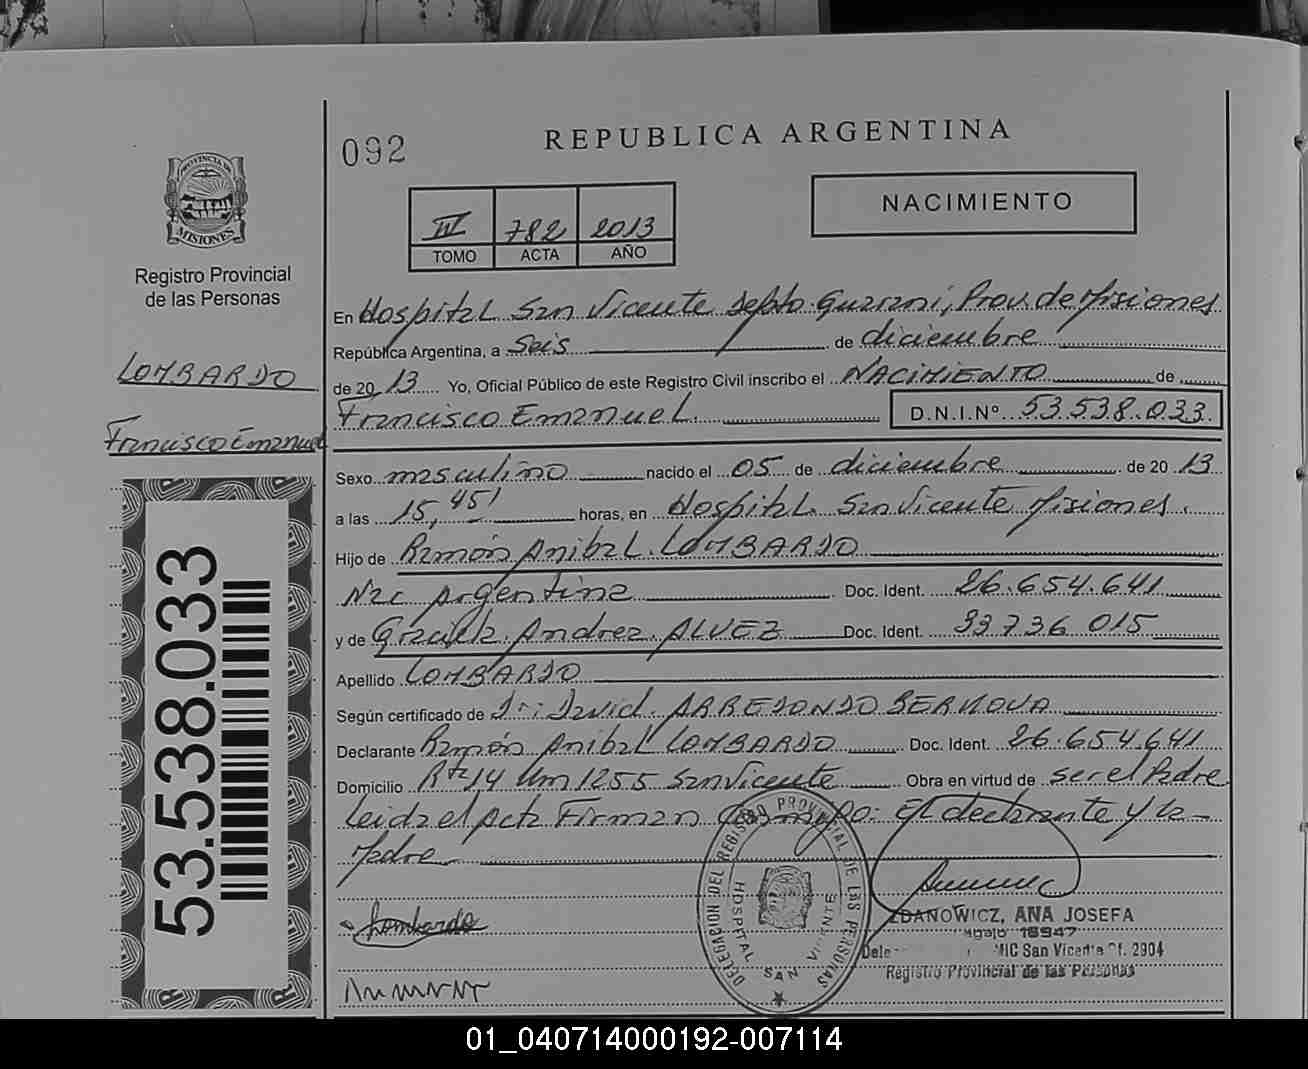 092
REPUBLICA ARGENTINA
PROVINCIA DE
MISIONES
Registro Provincial
de las Personas
III 782 2013
TOMO ACTA AÑO
NACIMIENTO
LOMBARDO
Francisco Emanuel
53.538.033
En Hospital San Vicente Depto. Guaraní, Prov. de Misiones
República Argentina, a Seis de diciembre
de 2013 Yo, Oficial Público de este Registro Civil inscribo el NACIMIENTO de
Francisco Emanuel D.N.I.Nº 53.538.033
Sexo masculino nacido el 05 de diciembre de 2013
a las 15,45' horas, en Hospital San Vicente Misiones.
Hijo de Ramón Anibal LOMBARDO
Nac Argentina Doc. Ident. 26.654.641
y de Graciela Andrea ALVEZ Doc. Ident. 33736 015
Apellido LOMBARDO
Según certificado de Dr: David ARREDONDO BERNOVA
Declarante Ramón Anibal LOMBARDO Doc. Ident. 26.654.641
Domicilio Rta 14 Km 1255 San Vicente Obra en virtud de ser el Padre
Leida el Acta Firman Conmigo: El declarante y la
Madre
Lombardo
DELEGACION DEL REGISTRO PROVINCIAL DE LAS PERSONAS
HOSPITAL SAN VICENTE
ZDANOWICZ, ANA JOSEFA
Legajo 18947
Dele MIC San Vicente Of. 2904
Registro Provincial de las Personas
01_040714000192-007114